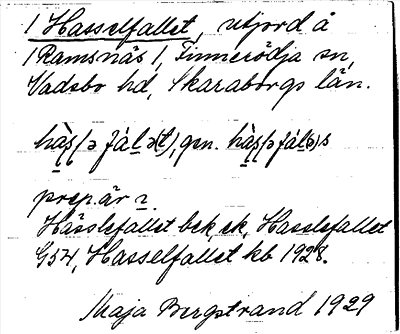 1 Hasselfallet, utjord å
1 Ramsnäs 1, Finnerödja sn,
Vadsbo hd, Skaraborgs län.
gen.
prep. är
Hässlefallet bek. ek, Hasslefallet
G54, Hasselfallet kb 1928.
Maja Bergstrand 1929